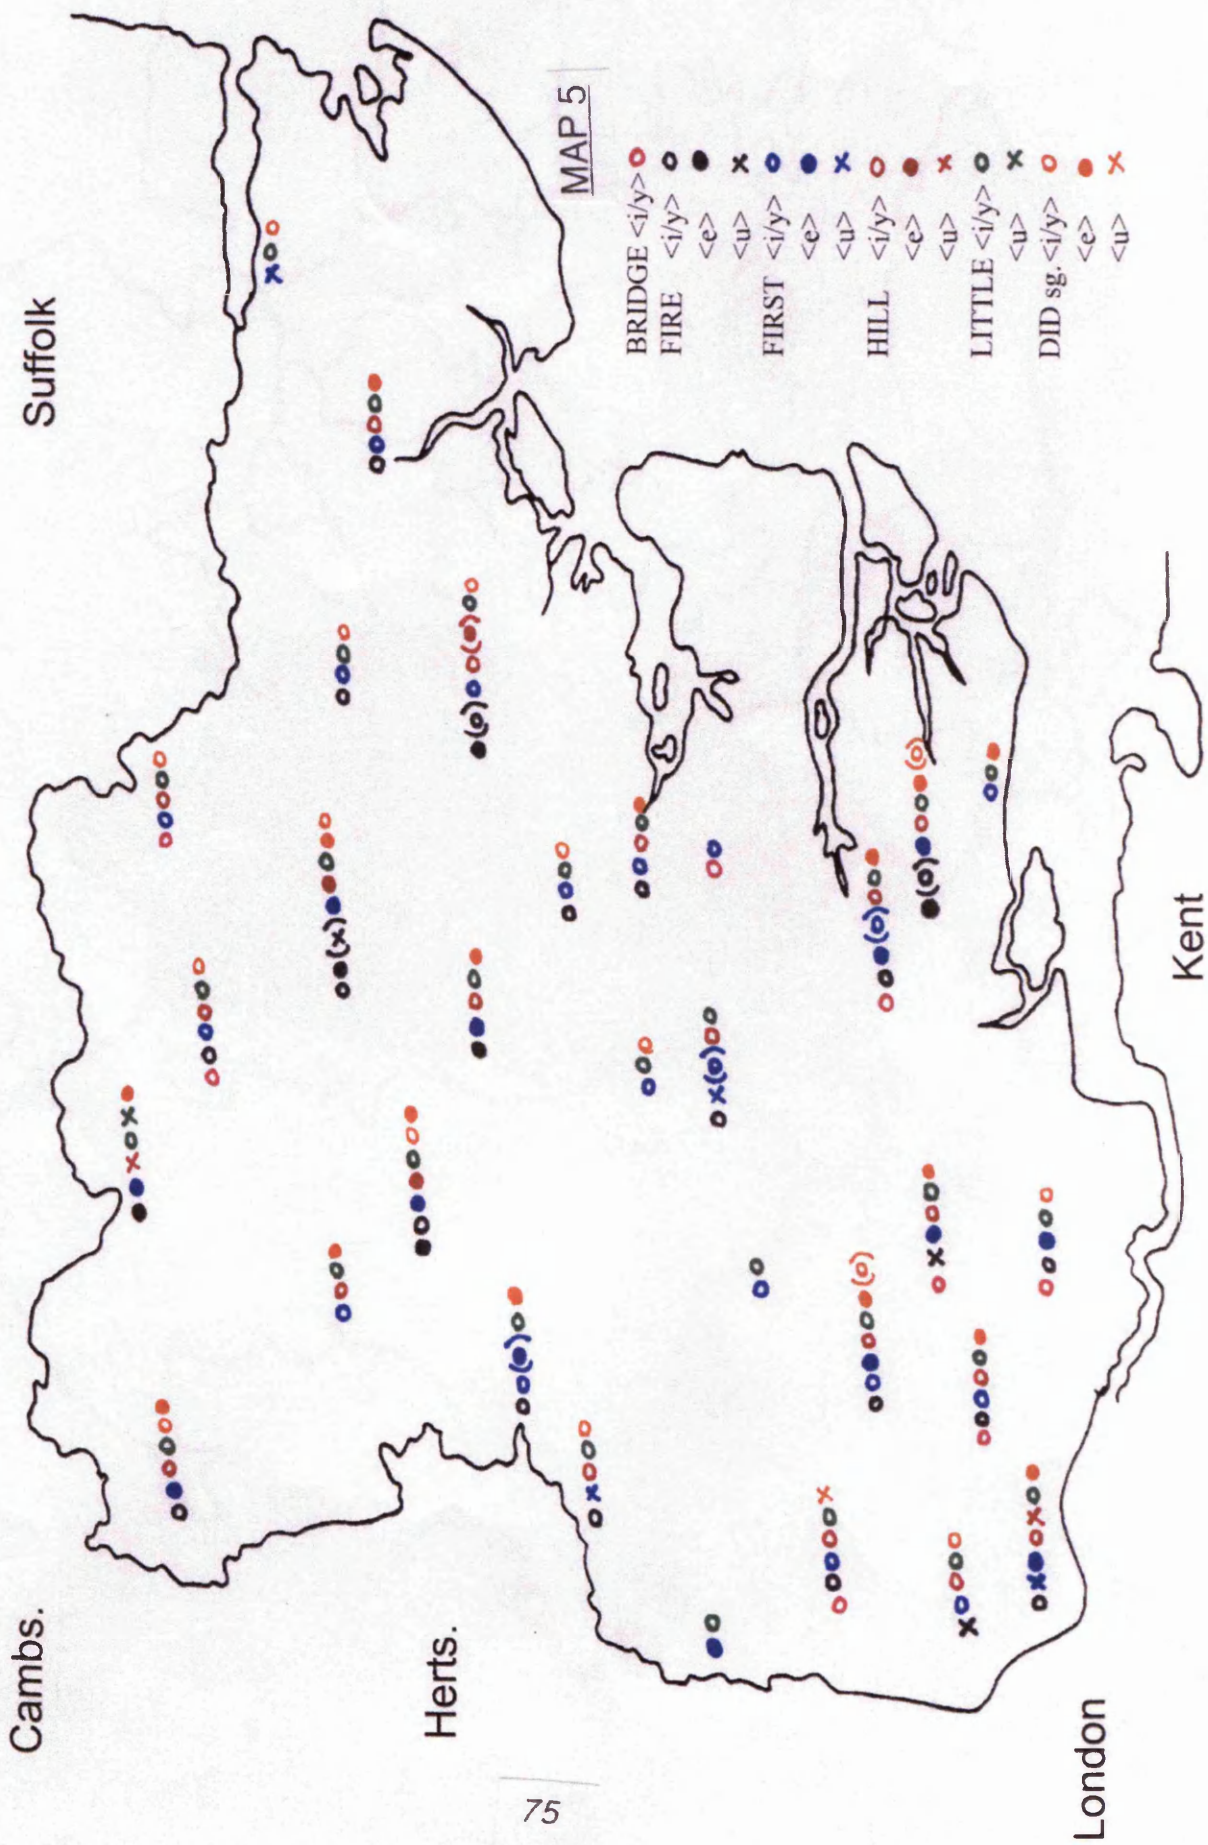 Cambs.
Suffolk
Herts.
London
Kent
MAP 5
BRIDGE <i/y>
FIRE <i/y>
<e>
<u>
FIRST <i/y>
<e>
<u>
HILL <i/y>
<e>
<u>
LITTLE <i/y>
<u>
DID sg. <i/y>
<e>
<u>
75